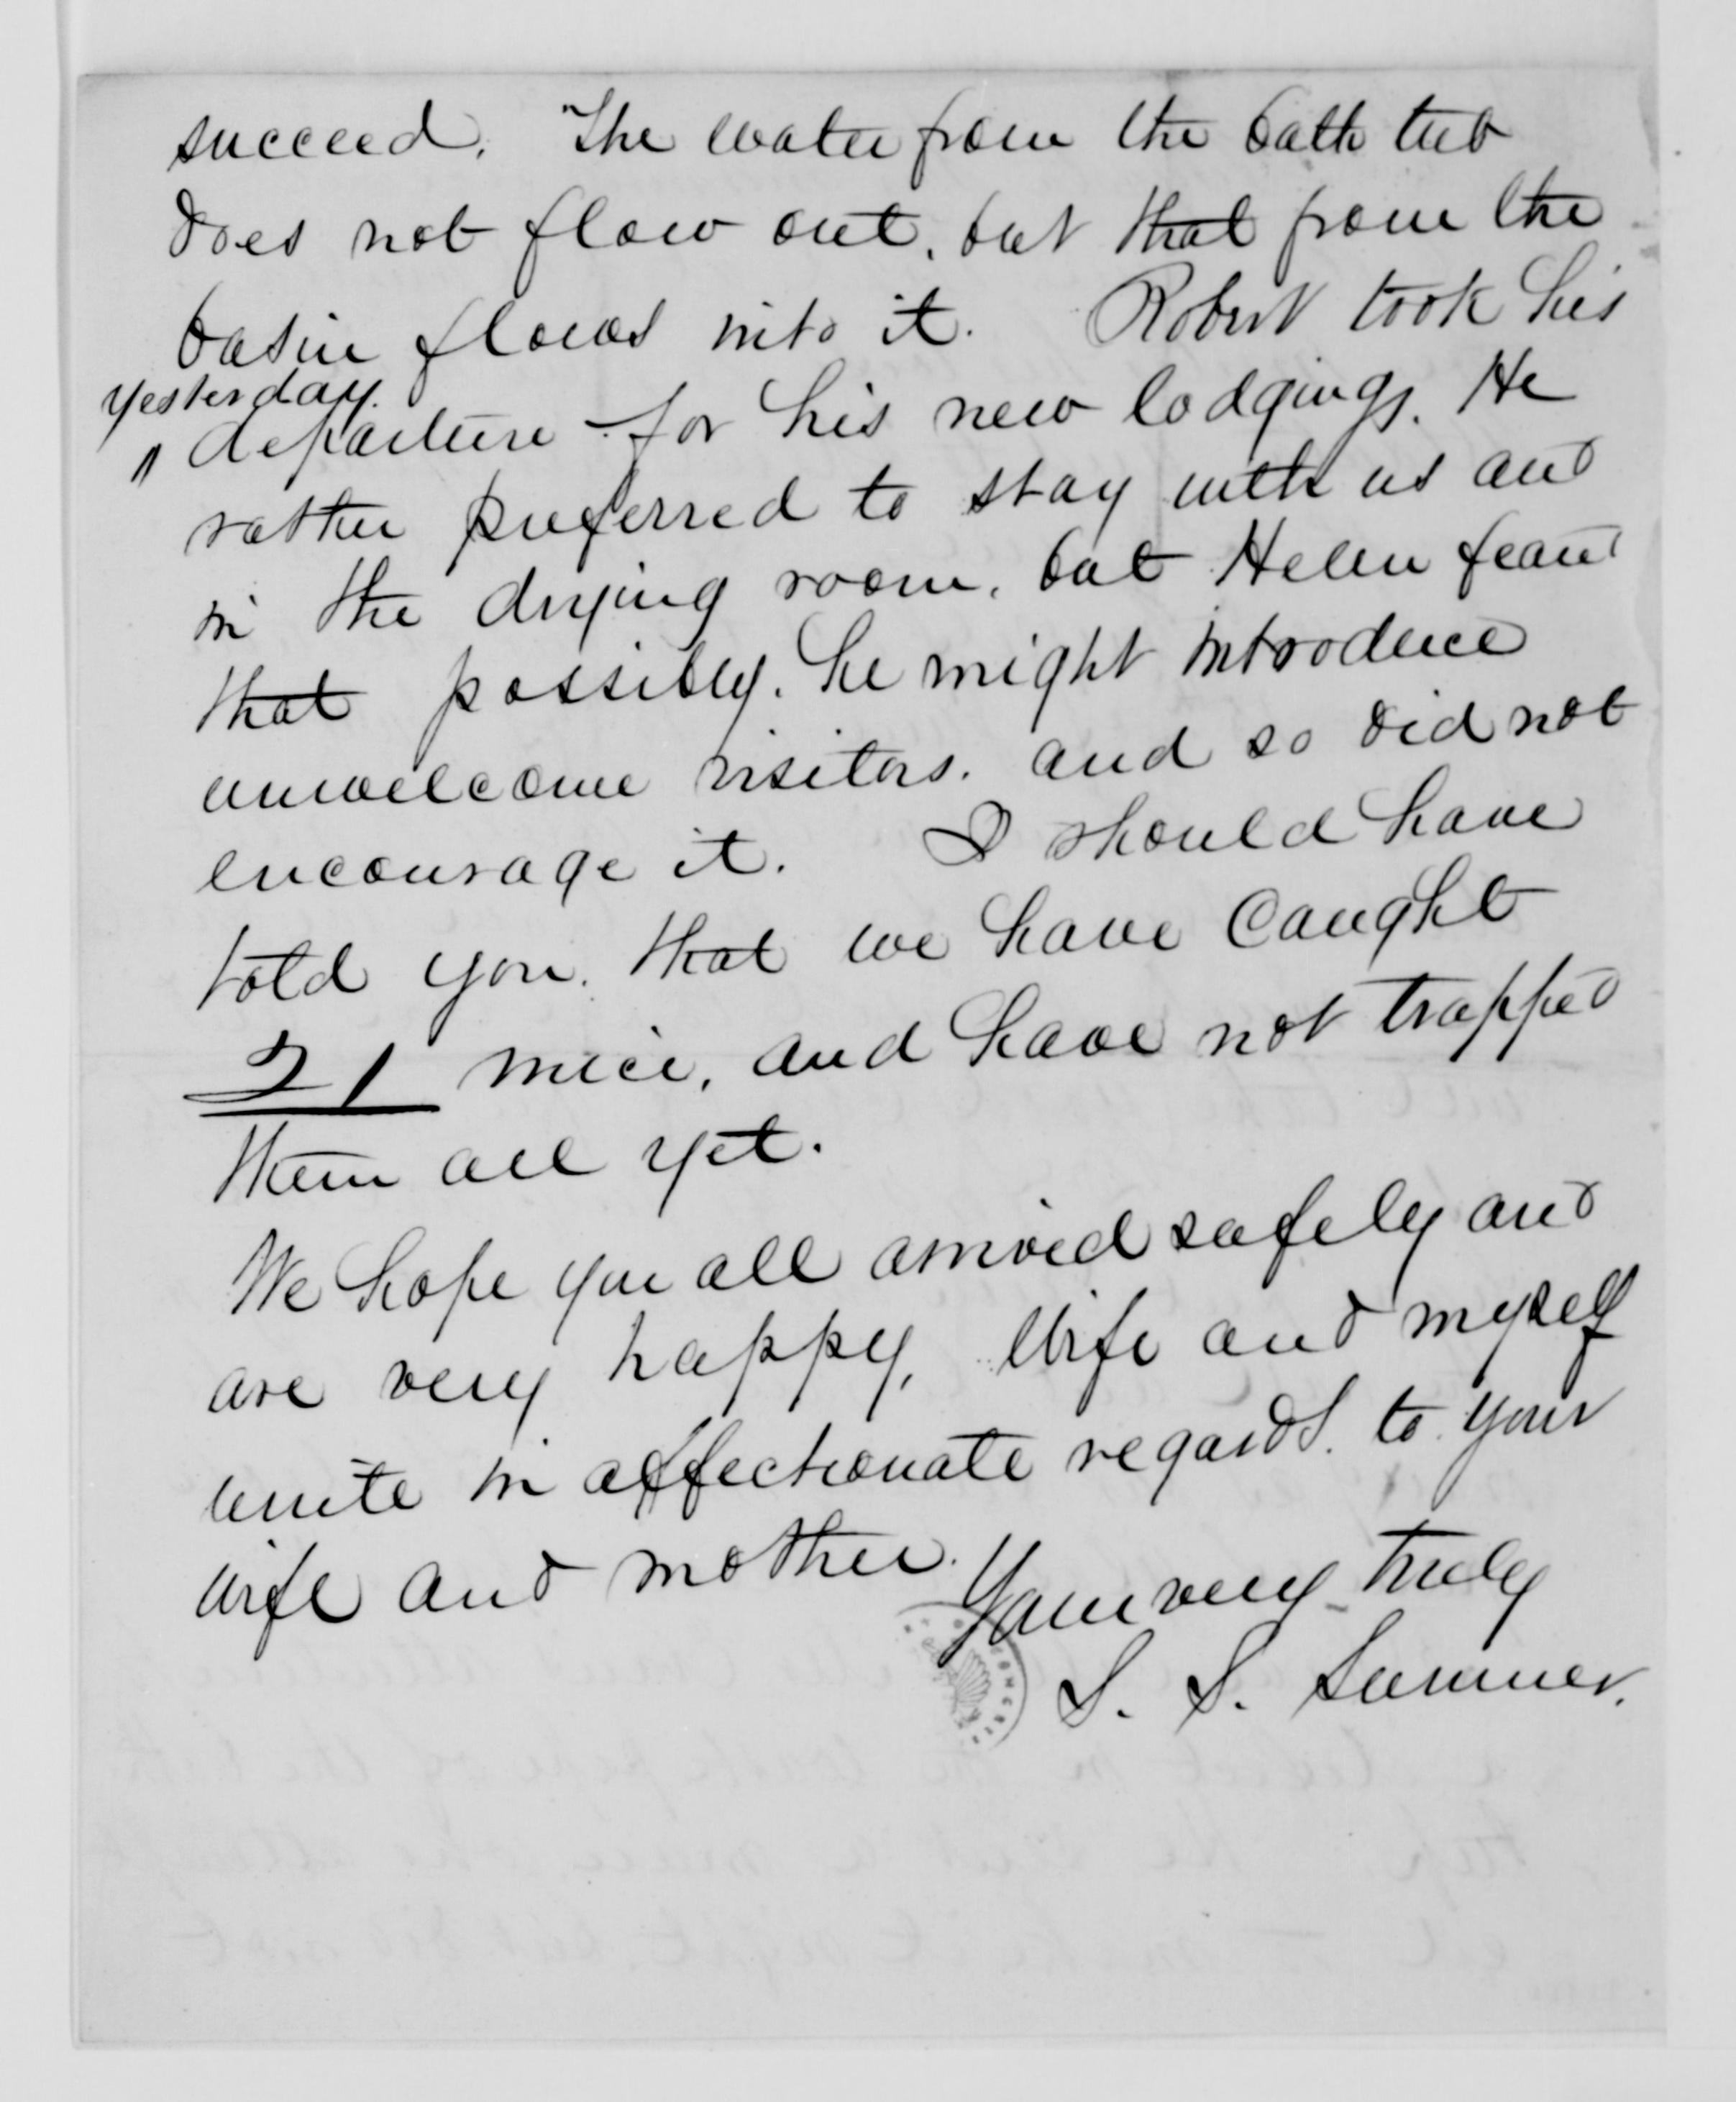 succeed. The water from the bath tub
does not flow out, but that from the
basin flows into it. Robert took his
yesterday.
departure for his new lodgings. He
rather preferred to stay with us and
in the drying room, but Helen feard
that possibly, he might introduce
unwelcome visitors. and so did not
encourage it. I should have
told you, that we have caught
21 mice, and have not trapped
them all yet.
We hope you all arrived safely and
are very happy, Wife and myself
unite in affectionate regards. to your
wife and mother.
Your very truly
S. S. Sumner.